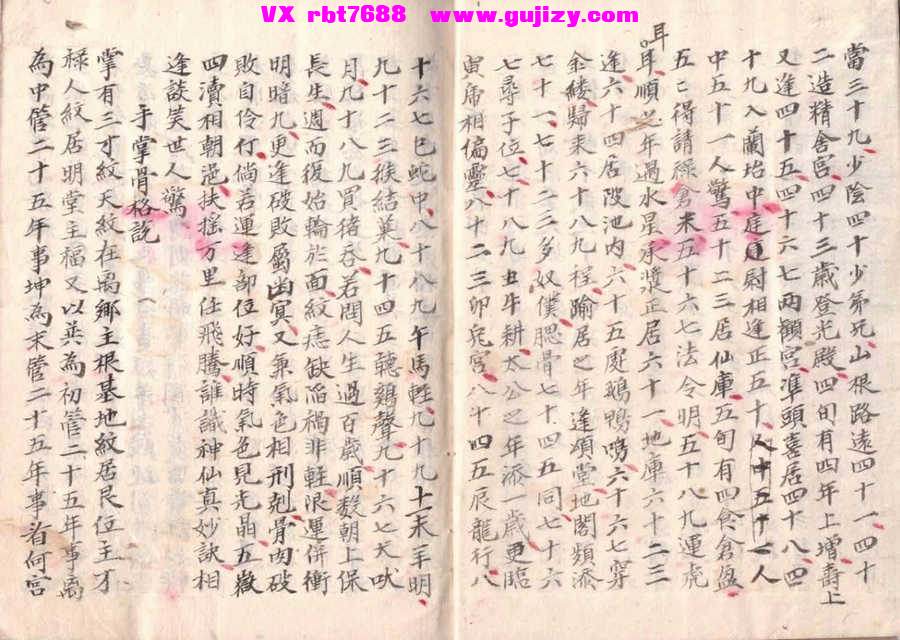 VX rbt7688 www.gujizy.com
當三十九少陰四十少弟兄山根路遠四十一四十
二造精舍宮四十三歲登光殿四旬有四年上增壽上
又逢四十五四十六七兩顴宮準頭喜居四十八四
十九入蘭坮中庭廷尉相逢正五十人中五十一人
中五十一人驚五十二三居仙庫五旬有四食倉盈
五五得請祿倉米五十六七法令明五十八九遇虎
耳
耳順之年過水星承漿正居六十一地庫六十二三
逢六十四居陂池內六十五處鵝鴨鳴六十六七穿
金縷歸來六十八九程踰居之年逢頌堂地閣頻添
七十一七十二三多奴僕腮骨七十四五同七十六
七尋子位七十八九丑牛耕太公之年添一歲更臨
寅虎相偏靈八十二三卯兔宮八十四五辰龍行八
十六七巳蛇中八十八九午馬輕九十九十一未羊明
九十二三猴結菓九十四五聽鷄聲九十六七犬吠
月九十八九買猪吞若問人生過百歲順數朝上保
長生週而復始輪於面紋痣缺陷禍非輕限運併衝
明暗九更逢破敗屬幽冥又兼氣色相刑剋骨肉破
敗自伶仃倘若運逢部位好順時氣色見光晶五嶽
四瀆相朝挹扶搖万里任飛騰誰識神仙真妙訣相
逢談笑世人驚
手掌骨格説
掌有三才紋天紋在离鄉主根基地紋居艮位主才
祿人紋居明堂主福又以巽為初管二十五年事离
為中管二十五年事坤為末管二十五年事看何宮